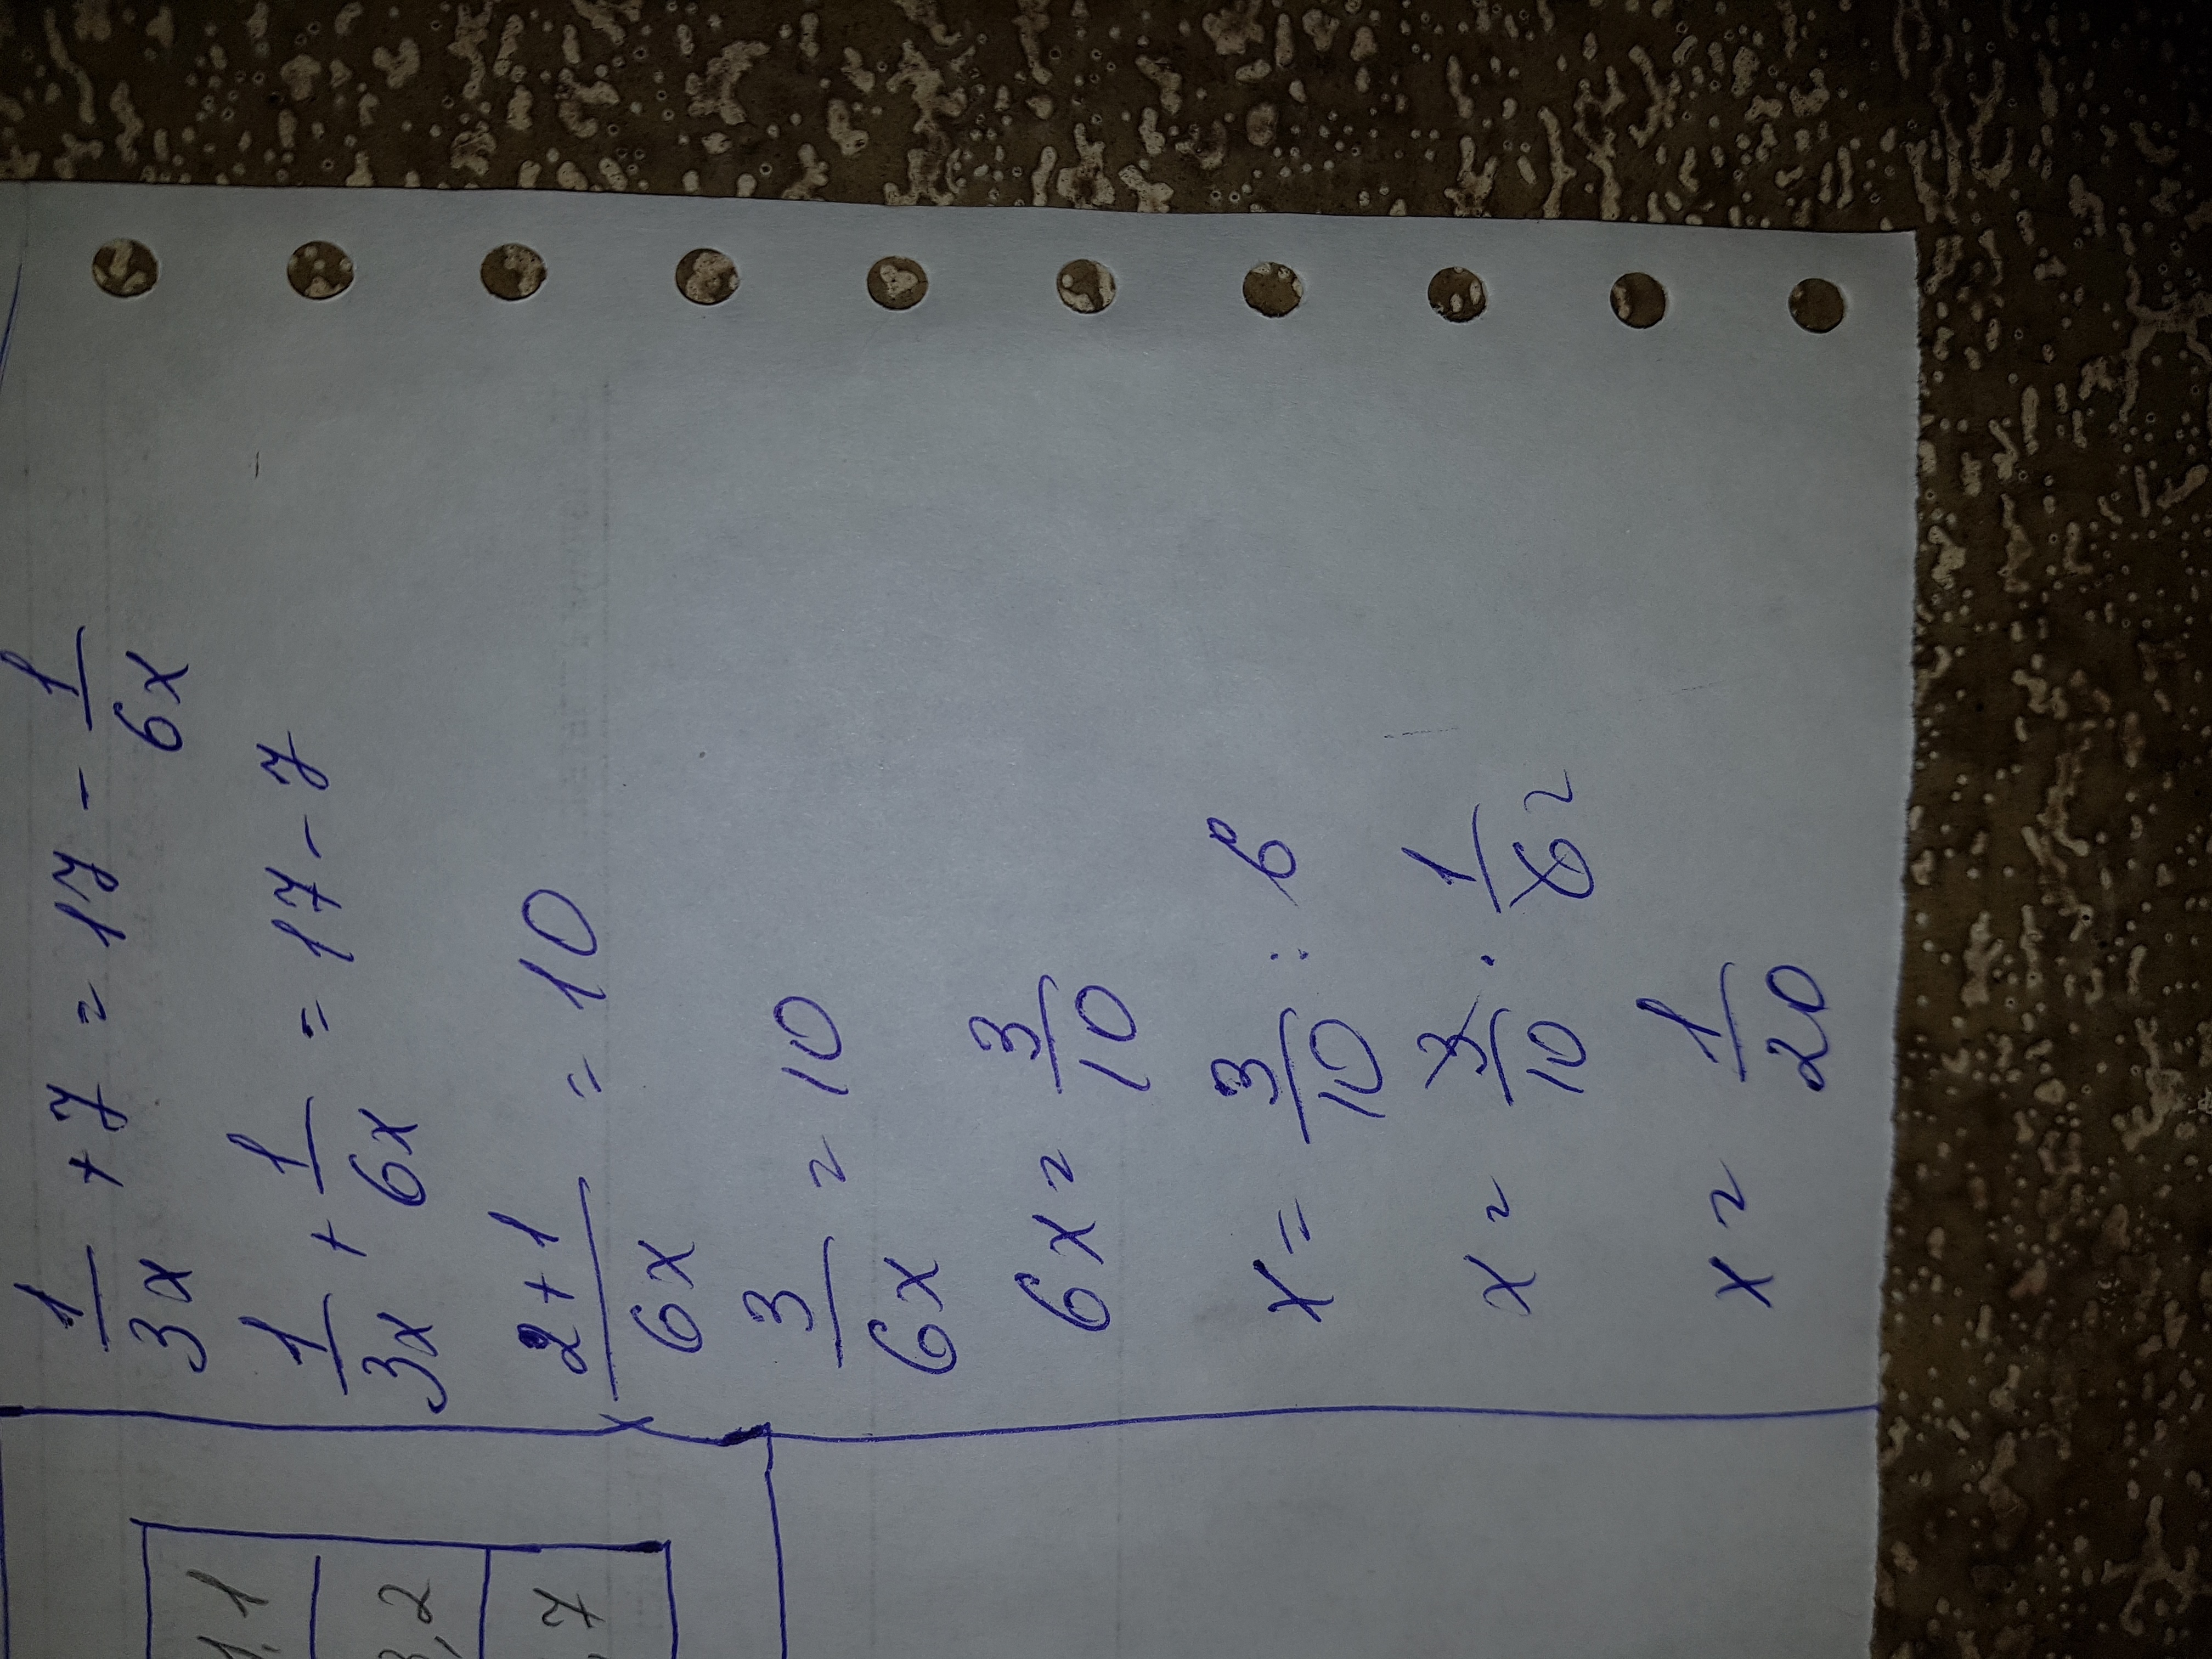 1/3x + 7 = 17 - 1/6x
1/3x + 1/6x = 17 - 7
2+1/6x = 10
3/6x = 10
6x = 3/10
x = 3/10 : 6
x = 3/10 · 1/6 2
x = 1/20
1,1
3,2
,7